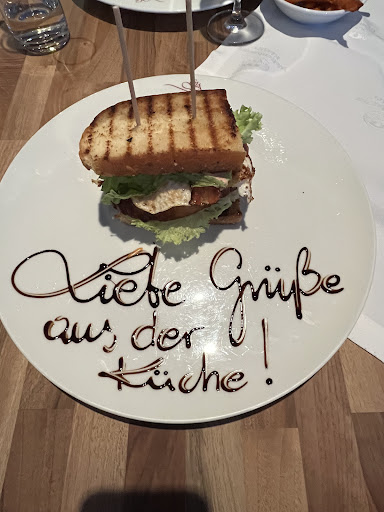 Liebe Grüße
aus der
Küche!